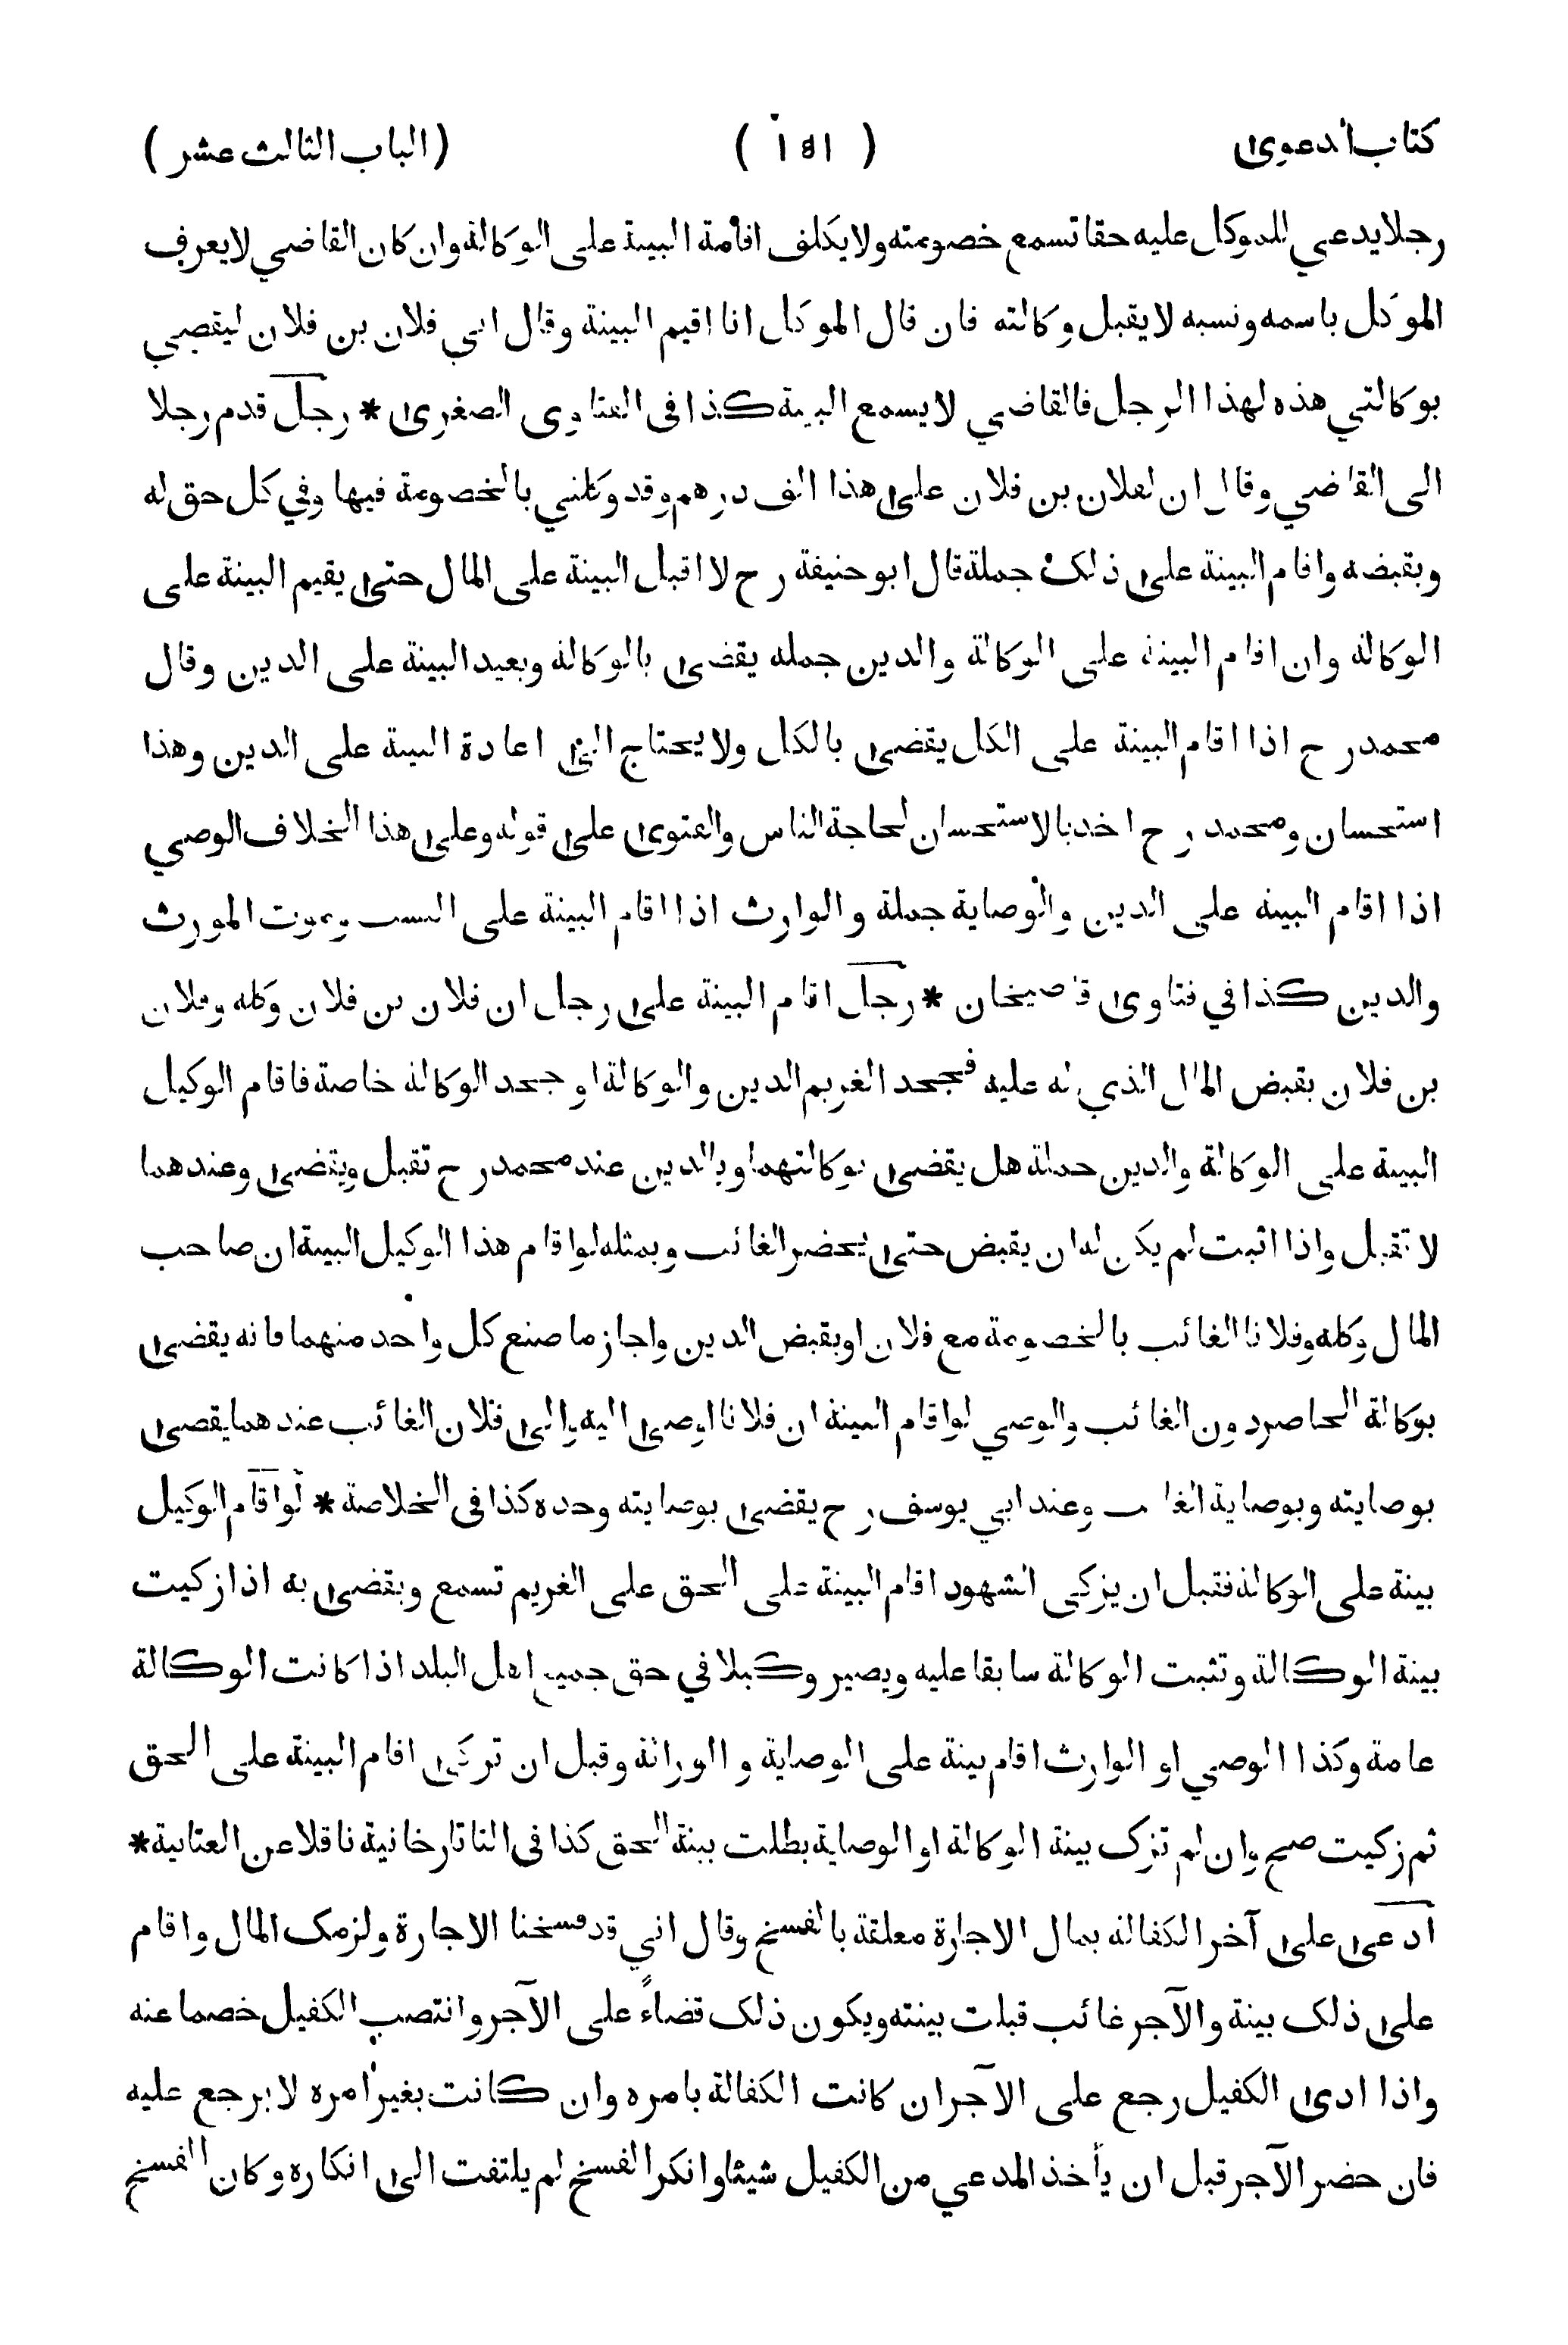 كتاب الدعوى ( ١٥١ ) (الباب الثالث عشر )
رجلا يدعي للموكل عليه حقا تسمع خصومته ولا يكلف اقامة البينة على الوكالة وان كان القاضي لا يعرف
الموكل باسمه ونسبه لا يقبل وكالته فان قال الموكل انا اقيم البينة وقال اني فلان بن فلان ليقضي
بوكالتي هذه لهذا الرجل فالقاضي لا يسمع البينة كذا فى الفتاوى الصغرى * رجل قدم رجلا
الى القاضي وقال ان لفلان بن فلان على هذا الف درهم وقد وكلني بالخصومة فيها وفي كل حق له
وبقبضه واقام البينة على ذلك جملة قال ابو حنيفة رح لا اقبل البينة على المال حتى يقيم البينة على
الوكالة وان اقام البينة على الوكالة والدين جملة يقضى بالوكالة ويعيد البينة على الدين وقال
محمد رح اذا اقام البينة على الكل يقضى بالكل ولا يحتاج الى اعادة البينة على الدين وهذا
استحسان ومحمد رح اخذ بالاستحسان لحاجة الناس والفتوى على قوله وعلى هذا الخلاف الوصي
اذا اقام البينة على الدين والوصاية جملة والوارث اذا اقام البينة على النسب وموت المورث
والدين كذا في فتاوى قاضيخان * رجل اقام البينة على رجل ان فلان بن فلان وكله وفلان
بن فلان بقبض المال الذي له عليه فجحد الغريم الدين والوكالة او جحد الوكالة خاصة فاقام الوكيل
البينة على الوكالة والدين جملة هل يقضى بوكالتهما وبالدين عند محمد رح تقبل ويقضى وعندهما
لا تقبل واذا اثبت لم يكن له ان يقبض حتى يحضر الغائب وبمثله لو اقام هذا الوكيل البينة ان صاحب
المال وكله وفلانا الغائب بالخصومة مع فلان او بقبض الدين واجاز ما صنع كل واحد منهما فانه يقضى
بوكالة الحاضر دون الغائب والوصي لو اقام البينة ان فلانا اوصى اليه والى فلان الغائب عندهما يقضى
بوصايته وبوصاية الغائب وعند ابي يوسف رح يقضى بوصايته وحده كذا فى الخلاصة * لو اقام الوكيل
بينة على الوكالة فقبل ان يزكى الشهود اقام البينة على الحق على الغريم تسمع ويقضى به اذا زكيت
بينة الوكالة وتثبت الوكالة سابقا عليه ويصير وكيلا في حق جميع اهل البلد اذا كانت الوكالة
عامة وكذا الوصي او الوارث اقام بينة على الوصاية والوراثة وقبل ان تزكى اقام البينة على الحق
ثم زكيت صح وان لم تزك بينة الوكالة او الوصاية بطلت بينة الحق كذا فى التاتارخانية ناقلا عن العتابية *
ادعى على آخر الكفالة بمال الاجارة معلقة بالفسخ وقال اني قد فسخنا الاجارة ولزمك المال واقام
على ذلك بينة والآجر غائب قبلت بينته ويكون ذلك قضاءً على الآجر وانتصب الكفيل خصما عنه
واذا ادى الكفيل رجع على الآجر ان كانت الكفالة بامره وان كانت بغير امره لا يرجع عليه
فان حضر الآجر قبل ان يأخذ المدعي من الكفيل شيئا وانكر الفسخ لم يلتفت الى انكاره وكان الفسخ